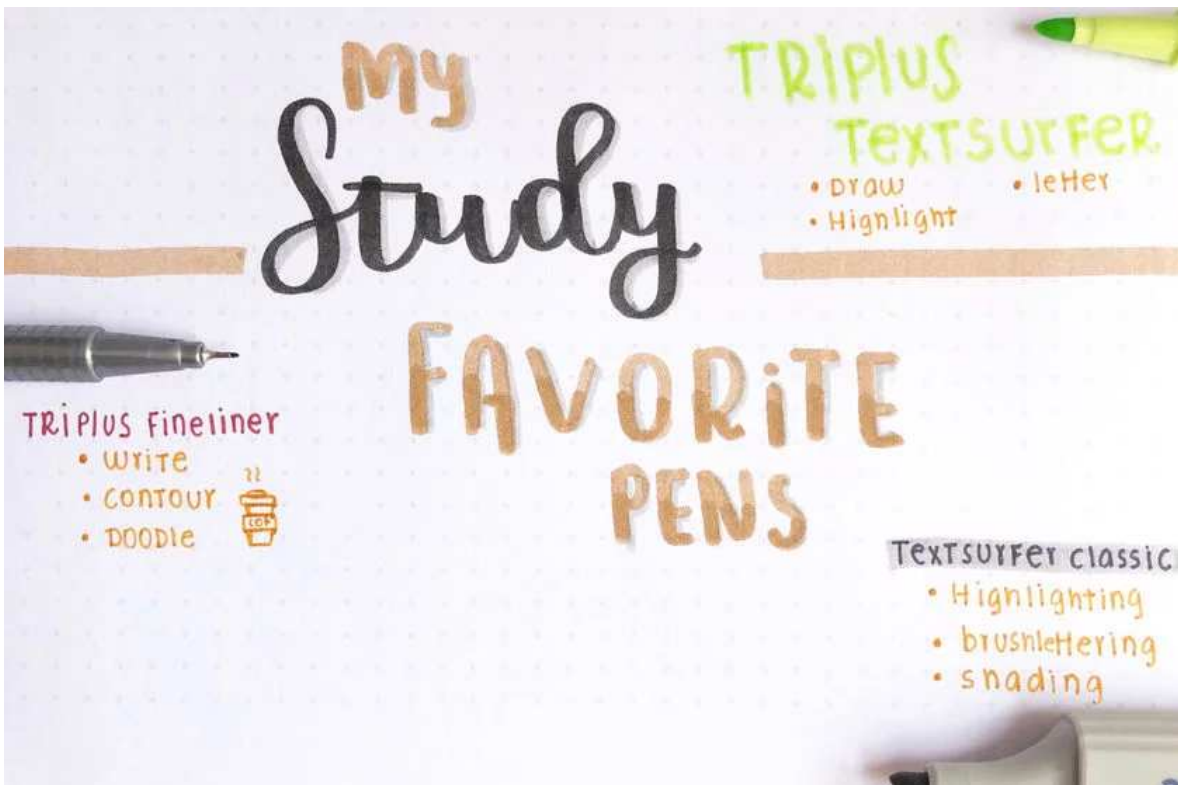 My
Study
FAVORiTE
PENS
TRiPlUS
TEXTSURFER
• Draw
• letter
• Highlight
TRiPlUS Fineliner
• Write
• Contour
• DOODle
COF
Textsurfer Classic
• Highlighting
• brushlettering
• shading